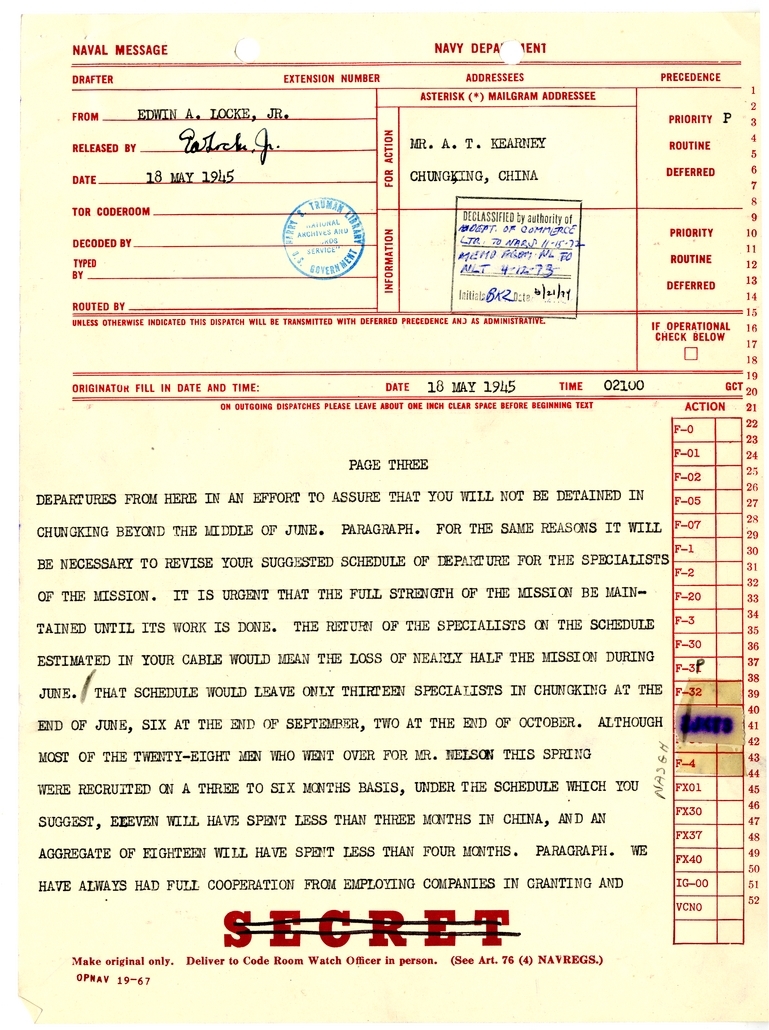 NAVAL MESSAGE
NAVY DEPA MENT
DRAFTER
EXTENSION NUMBER
ADDRESSEES
PRECEDENCE
FROM EDWIN A. LOCKE, JR.
RELEASED BY EaLocke, Jr.
DATE 18 MAY 1945
TOR CODEROOM
DECODED BY
TYPED
BY
ROUTED BY
ASTERISK (*) MAILGRAM ADDRESSEE
FOR ACTION
MR. A. T. KEARNEY
CHUNGKING, CHINA
INFORMATION
PRIORITY P
ROUTINE
DEFERRED
PRIORITY
ROUTINE
DEFERRED
HARRY S. TRUMAN LIBRARY
NATIONAL
ARCHIVES AND
RDS
SERVICE
U.S. GOVERNMENT
DECLASSIFIED by authority of
DEPT. OF COMMERCE
LTR. TO NARS, 11-15-72
MEMO FROM NL TO
NLT 4-12-73
Initials BKZ Date 3/21/74
UNLESS OTHERWISE INDICATED THIS DISPATCH WILL BE TRANSMITTED WITH DEFERRED PRECEDENCE AND AS ADMINISTRATIVE.
IF OPERATIONAL
CHECK BELOW
ORIGINATOR FILL IN DATE AND TIME: DATE 18 MAY 1945 TIME 02100 GCT
ON OUTGOING DISPATCHES PLEASE LEAVE ABOUT ONE INCH CLEAR SPACE BEFORE BEGINNING TEXT
ACTION
PAGE THREE
DEPARTURES FROM HERE IN AN EFFORT TO ASSURE THAT YOU WILL NOT BE DETAINED IN
CHUNGKING BEYOND THE MIDDLE OF JUNE. PARAGRAPH. FOR THE SAME REASONS IT WILL
BE NECESSARY TO REVISE YOUR SUGGESTED SCHEDULE OF DEPARTURE FOR THE SPECIALISTS
OF THE MISSION. IT IS URGENT THAT THE FULL STRENGTH OF THE MISSION BE MAIN-
TAINED UNTIL ITS WORK IS DONE. THE RETURN OF THE SPECIALISTS ON THE SCHEDULE
ESTIMATED IN YOUR CABLE WOULD MEAN THE LOSS OF NEARLY HALF THE MISSION DURING
JUNE. THAT SCHEDULE WOULD LEAVE ONLY THIRTEEN SPECIALISTS IN CHUNGKING AT THE
END OF JUNE, SIX AT THE END OF SEPTEMBER, TWO AT THE END OF OCTOBER. ALTHOUGH
MOST OF THE TWENTY-EIGHT MEN WHO WENT OVER FOR MR. NELSON THIS SPRING
WERE RECRUITED ON A THREE TO SIX MONTHS BASIS, UNDER THE SCHEDULE WHICH YOU
SUGGEST, ELEVEN WILL HAVE SPENT LESS THAN THREE MONTHS IN CHINA, AND AN
AGGREGATE OF EIGHTEEN WILL HAVE SPENT LESS THAN FOUR MONTHS. PARAGRAPH. WE
HAVE ALWAYS HAD FULL COOPERATION FROM EMPLOYING COMPANIES IN GRANTING AND
F-0
F-01
F-02
F-05
F-07
F-1
F-2
F-20
F-3
F-30
F-3P
F-32
F-4
FX01
FX30
FX37
FX40
IG-00
VCNO
1
2
3
4
5
6
7
8
9
10
11
12
13
14
15
16
17
18
19
20
21
22
23
24
25
26
27
28
29
30
31
32
33
34
35
36
37
38
39
40
41
42
43
44
45
46
47
48
49
50
51
52
SECRET
Make original only. Deliver to Code Room Watch Officer in person. (See Art. 76 (4) NAVREGS.)
OPNAV 19-67